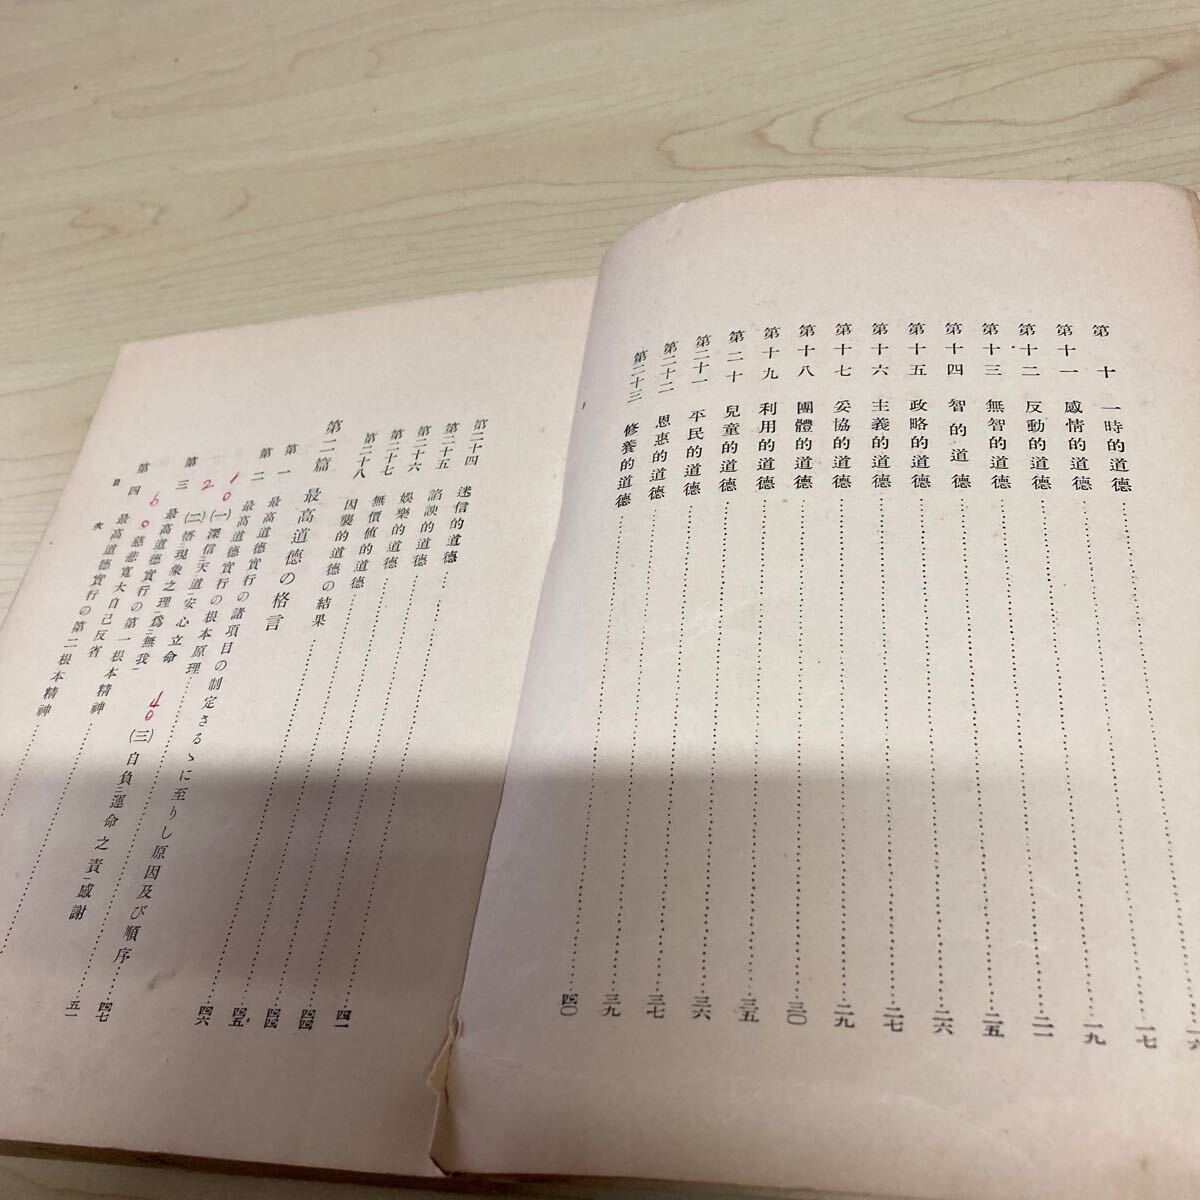 第十 一時的道德 一六
第十一 感情的道德 一七
第十二 反動的道德 一九
第十三 無智的道德 二二
第十四 智的道德 二五
第十五 政略的道德 二六
第十六 主義的道德 二七
第十七 妥協的道德 二九
第十八 團體的道德 三〇
第十九 利用的道德 三五
第二十 兒童的道德 三六
第二十一 平民的道德 三七
第二十二 恩惠的道德 三九
第二十三 修養的道德 四〇
第二十四 迷信的道德 四一
第二十五 諂諛的道德 四四
第二十六 娛樂的道德 四四
第二十七 無價値的道德 四五
第二十八 因襲的道德の結果 四六
第二篇 最高道德の格言
第一 最高道德實行の諸項目の制定さるゝに至りし原因及び順序 四七
第二 最高道德實行の根本原理 五一
(一)深信天道安心立命
(二)悟現象之理爲無我 (三)自負運命之責感謝
第三 最高道德實行の第一根本精神
慈悲寬大自己反省
第四 最高道德實行の第二根本精神
目次